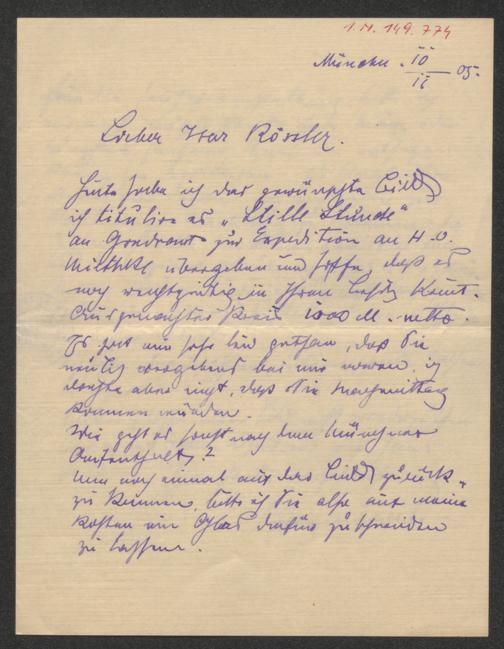 I.N. 149.774
München. 10/II 05.
Lieber Herr Rössler.
Heute habe ich das gewünschte Bild,
ich tituliere es „Stille Stunde“
an zur Expedition an H. O.
Miethke übergeben und hoffe, daß es
noch rechtzeitig in Ihren Besitz kommt.
Ausgemachter Preis 1000 M. netto.
Es hat mir sehr leid gethan, daß Sie
neulich vergebens bei mir waren, ich
dachte aber nicht, daß Sie Nachmittag
kommen würden.
Wie geht es sonst nach dem Münchner
Aufenthalt?
Um noch einmal auf das Bild zurück-
zu kommen, bitte ich Sie also auf meine
Kosten ein Glas dafür zu schneiden
zu lassen.